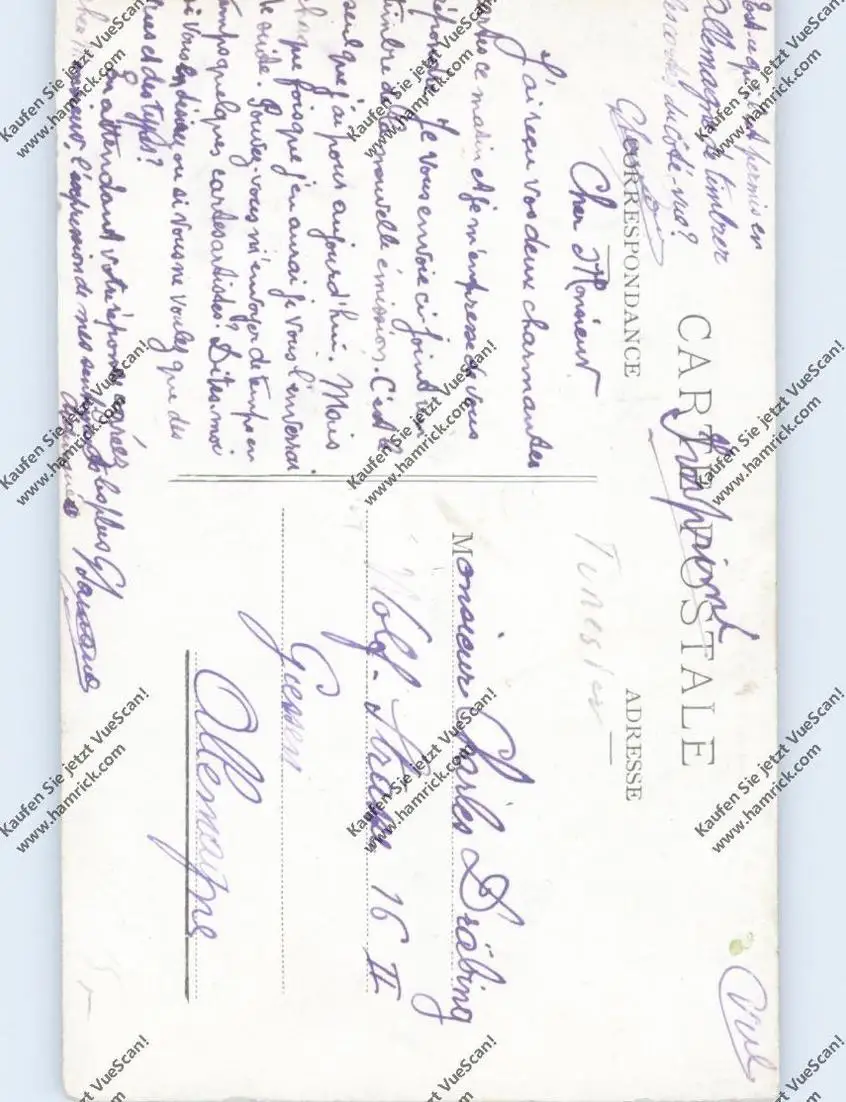 CARTE POSTALE
CORRESPONDANCE
ADRESSE
Est-ce qu'il est permis en
Allemagne de timbrer
les cartes du côté vue?
Cher Monsieur
J'ai reçu vos deux charmantes
cartes ce matin et je m'empresse de vous
répondre. Je vous envoie ci-joint un
timbre de la nouvelle émission. C'est le
seul que j'ai pour aujourd'hui. Mais
chaque fois que j'en aurai je vous l'enverrai
de suite. Pouvez-vous m'envoyer de temps en
temps quelques cartes artistes? Dites-moi
si vous en désirez ou si vous ne voulez que des
vues et des types?
En attendant votre réponse agréez
cher Monsieur, l'expression de mes sentiments les plus
Tunesien
Monsieur Charles Dräbing
Wolf. Strasse 16 II
Giessen
Allemagne
Kaufen Sie jetzt VueScan!
www.hamrick.com